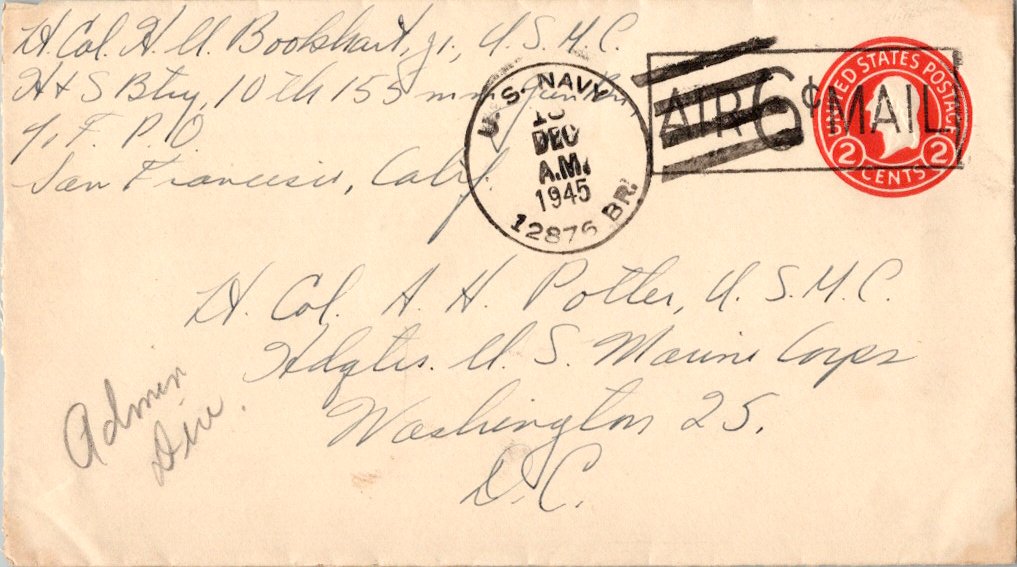 Lt. Col. H. U. Bookhart, jr., U.S.M.C.
H + S Btry, 10th 155 mm gun bn
% F. P. O.
San Francisco, Calif.
U. S. NAVY
DEC
A.M.
1945
12876 BR.
AIR 6¢ MAIL
UNITED STATES POSTAGE
2 2
CENTS
Lt. Col. A. H. Potter, U.S.M.C.
Hdqtrs. U. S. Marine Corps
Washington 25,
D. C.
Admin
Div.